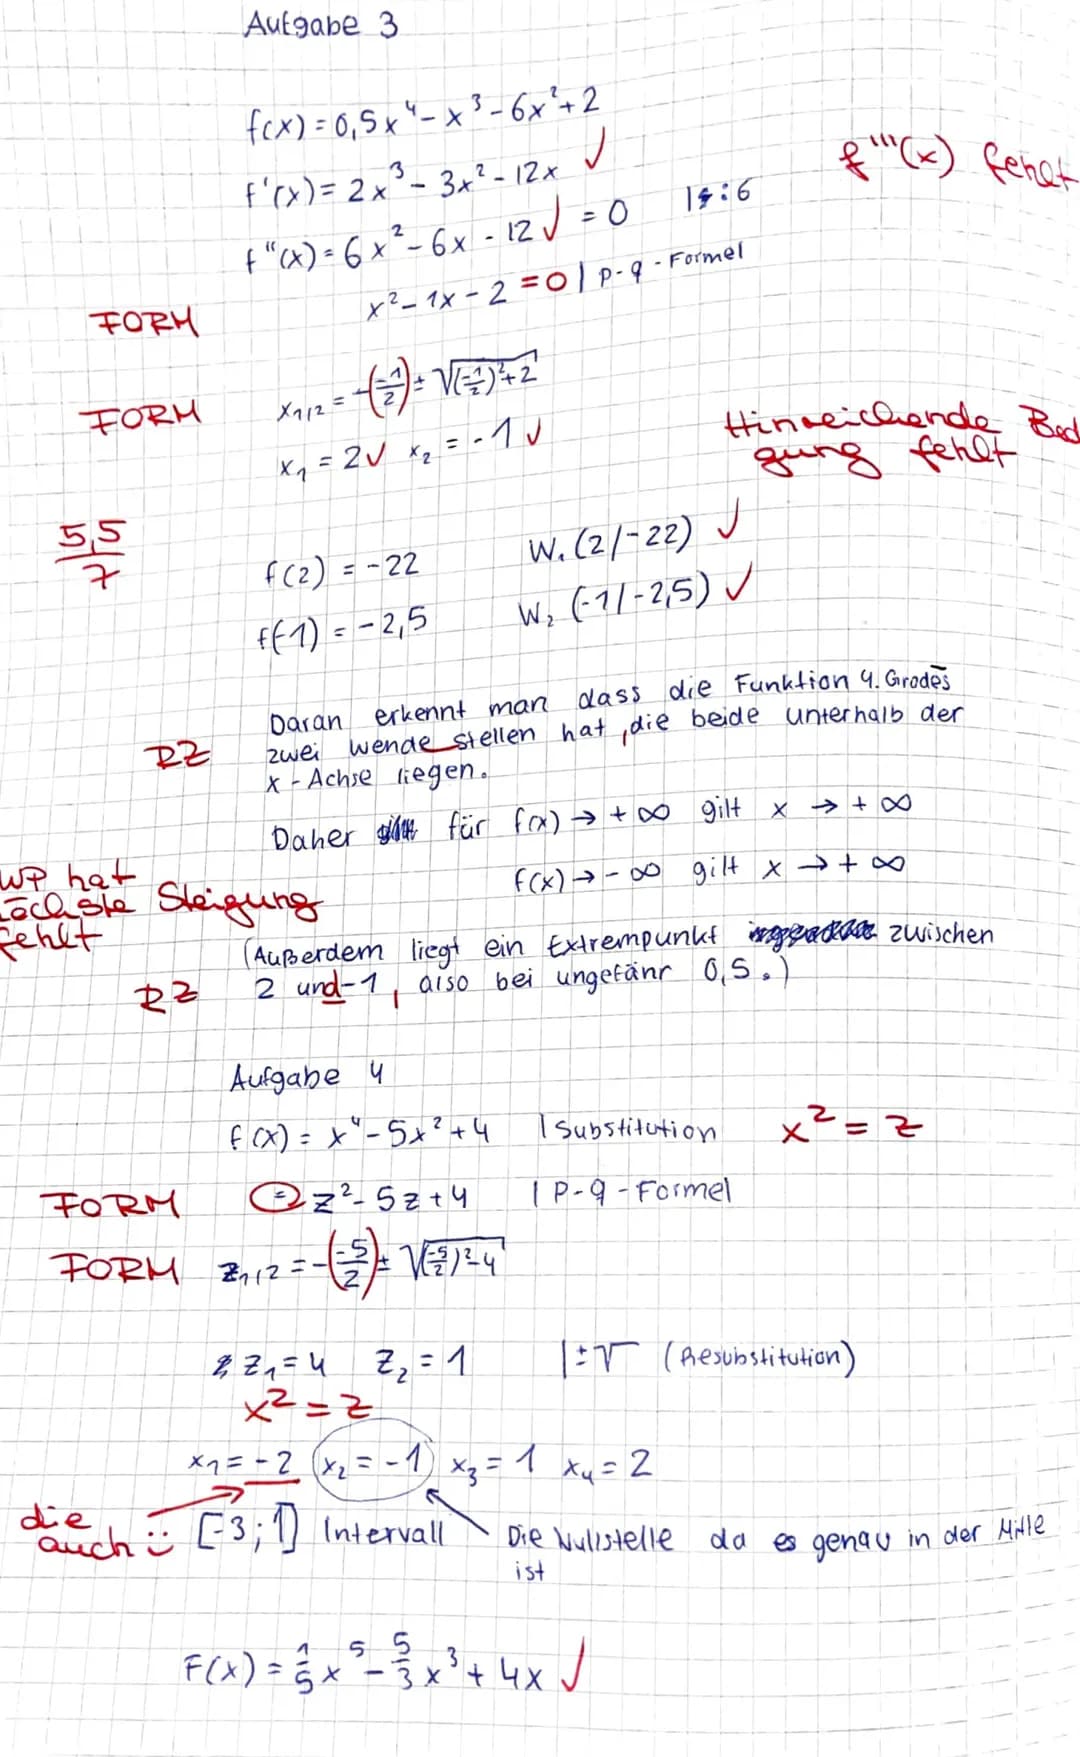 Aufgabe 3
f(x) = 0,5x⁴ - x³ - 6x² + 2
f'(x) = 2x³ - 3x² - 12x ✓
f'''(x) fehlt
f"(x) = 6x² - 6x - 12 ✓ = 0 | : 6
x² - 1x - 2 = 0 | p-q-Formel
FORM
FORM x₁/₂ = -(-1/2) ± √(-1/2)² + 2
x₁ = 2 ✓ x₂ = -1 ✓
Hinreichende Bed
gung fehlt
5,5/7
f(2) = -22 W. (2/-22) ✓
f(-1) = -2,5 W₂ (-1/-2,5) ✓
Daran erkennt man dass die Funktion 4. Grades
RZ zwei wende stellen hat, die beide unterhalb der
x-Achse liegen.
Daher für f(x) → + ∞ gilt x → + ∞
f(x) → - ∞ gilt x → + ∞
WP hat
höchste Steigung
fehlt
(Außerdem liegt ein Extrempunkt zwischen
RZ 2 und -1, also bei ungefähr 0,5.)
Aufgabe 4
f(x) = x⁴ - 5x² + 4 | Substitution x² = z
FORM = z² - 5z + 4 | P-q-Formel
FORM z₁/₂ = -(-5/2) ± √(-5/2)² - 4
z₁ = 4 z₂ = 1 | ± √ (Resubstitution)
x² = z
x₁ = -2 x₂ = -1 x₃ = 1 x₄ = 2
die
auch :) [-3; 1] Intervall Die Nullstelle da es genau in der Mitte
ist
F(x) = 1/5 x⁵ - 5/3 x³ + 4x ✓